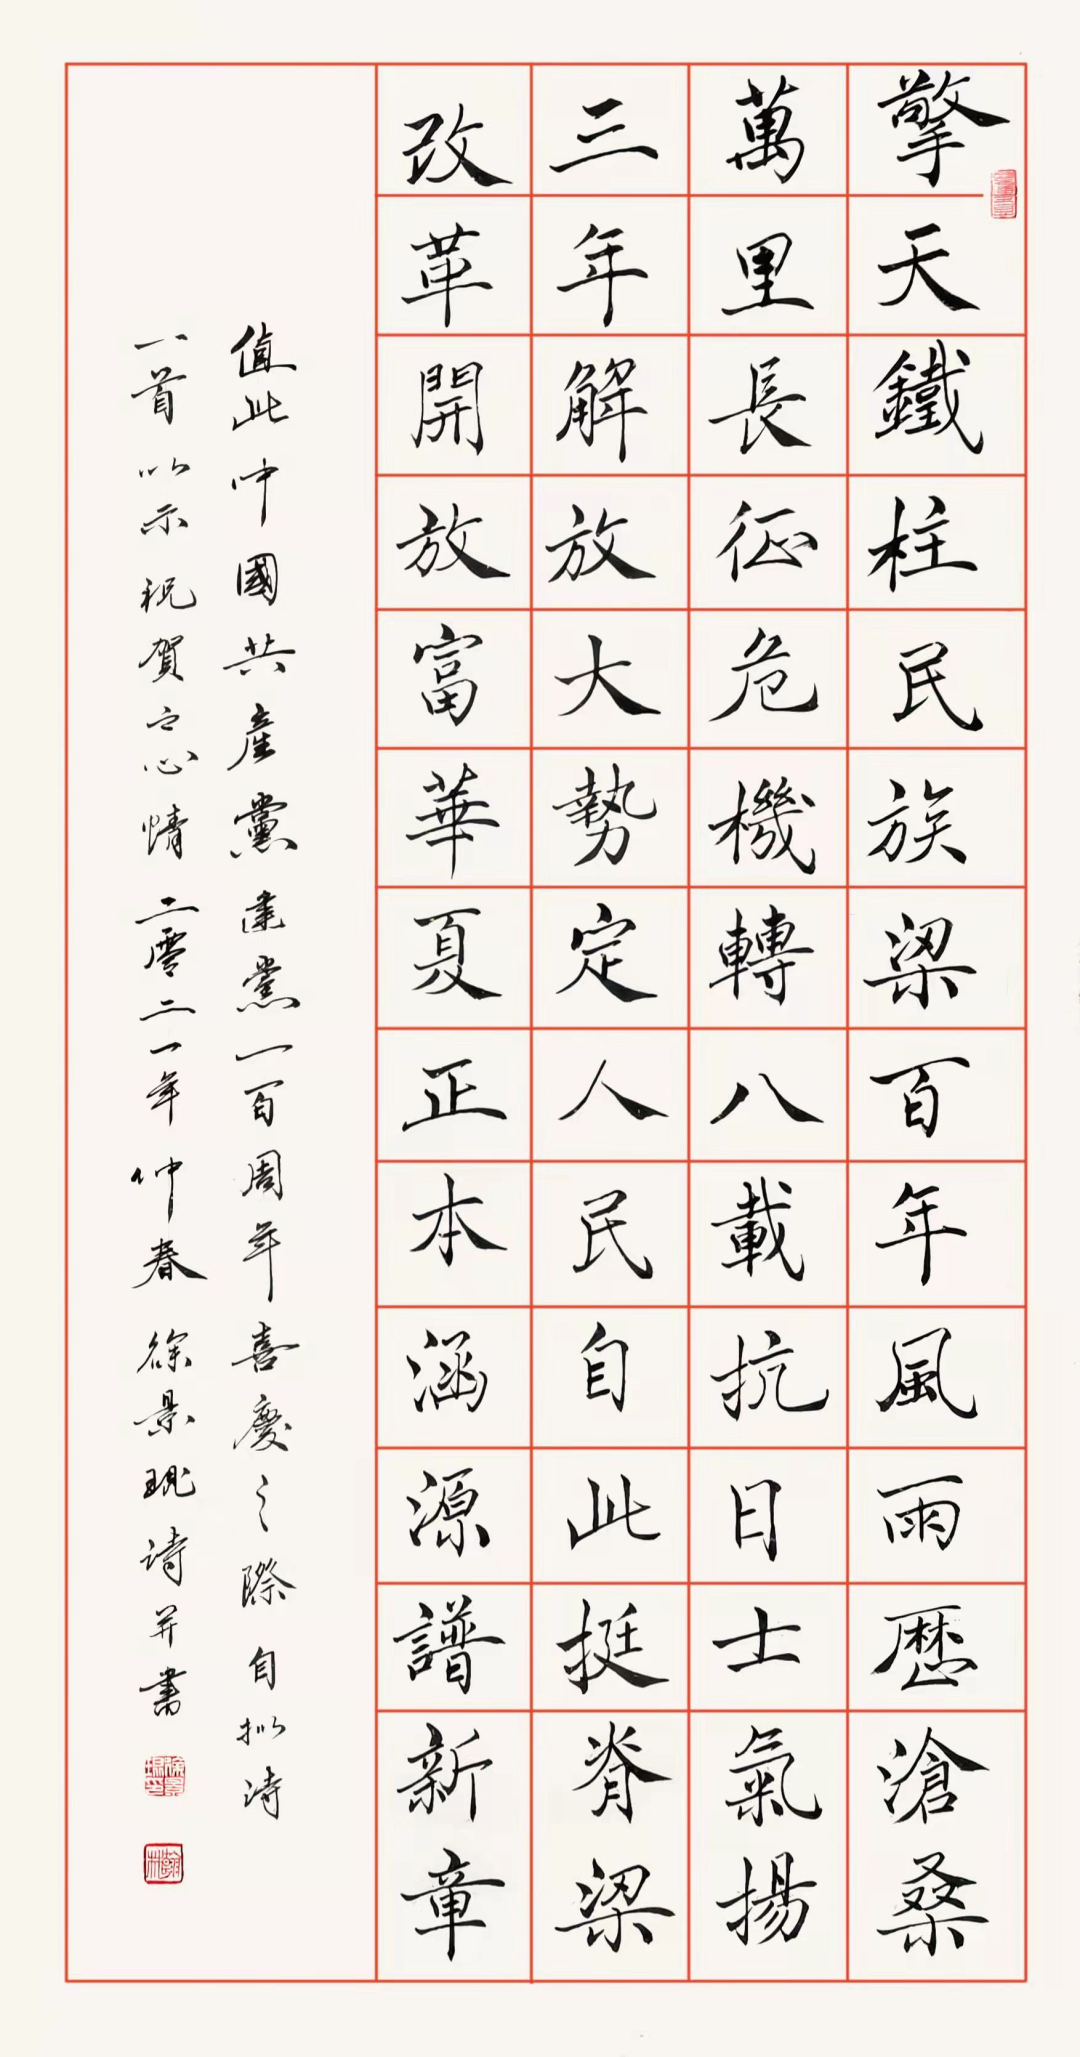 擎天鐵柱民族梁百年風雨歷滄桑
萬里長征危機轉八載抗日士氣揚
三年解放大勢定人民自此挺脊梁
改革開放富華夏正本涵源譜新章
值此中國共產黨建黨一百周年喜慶之際自擬詩
一首以示祝賀之心情二零二一年仲春徐景琨詩并書